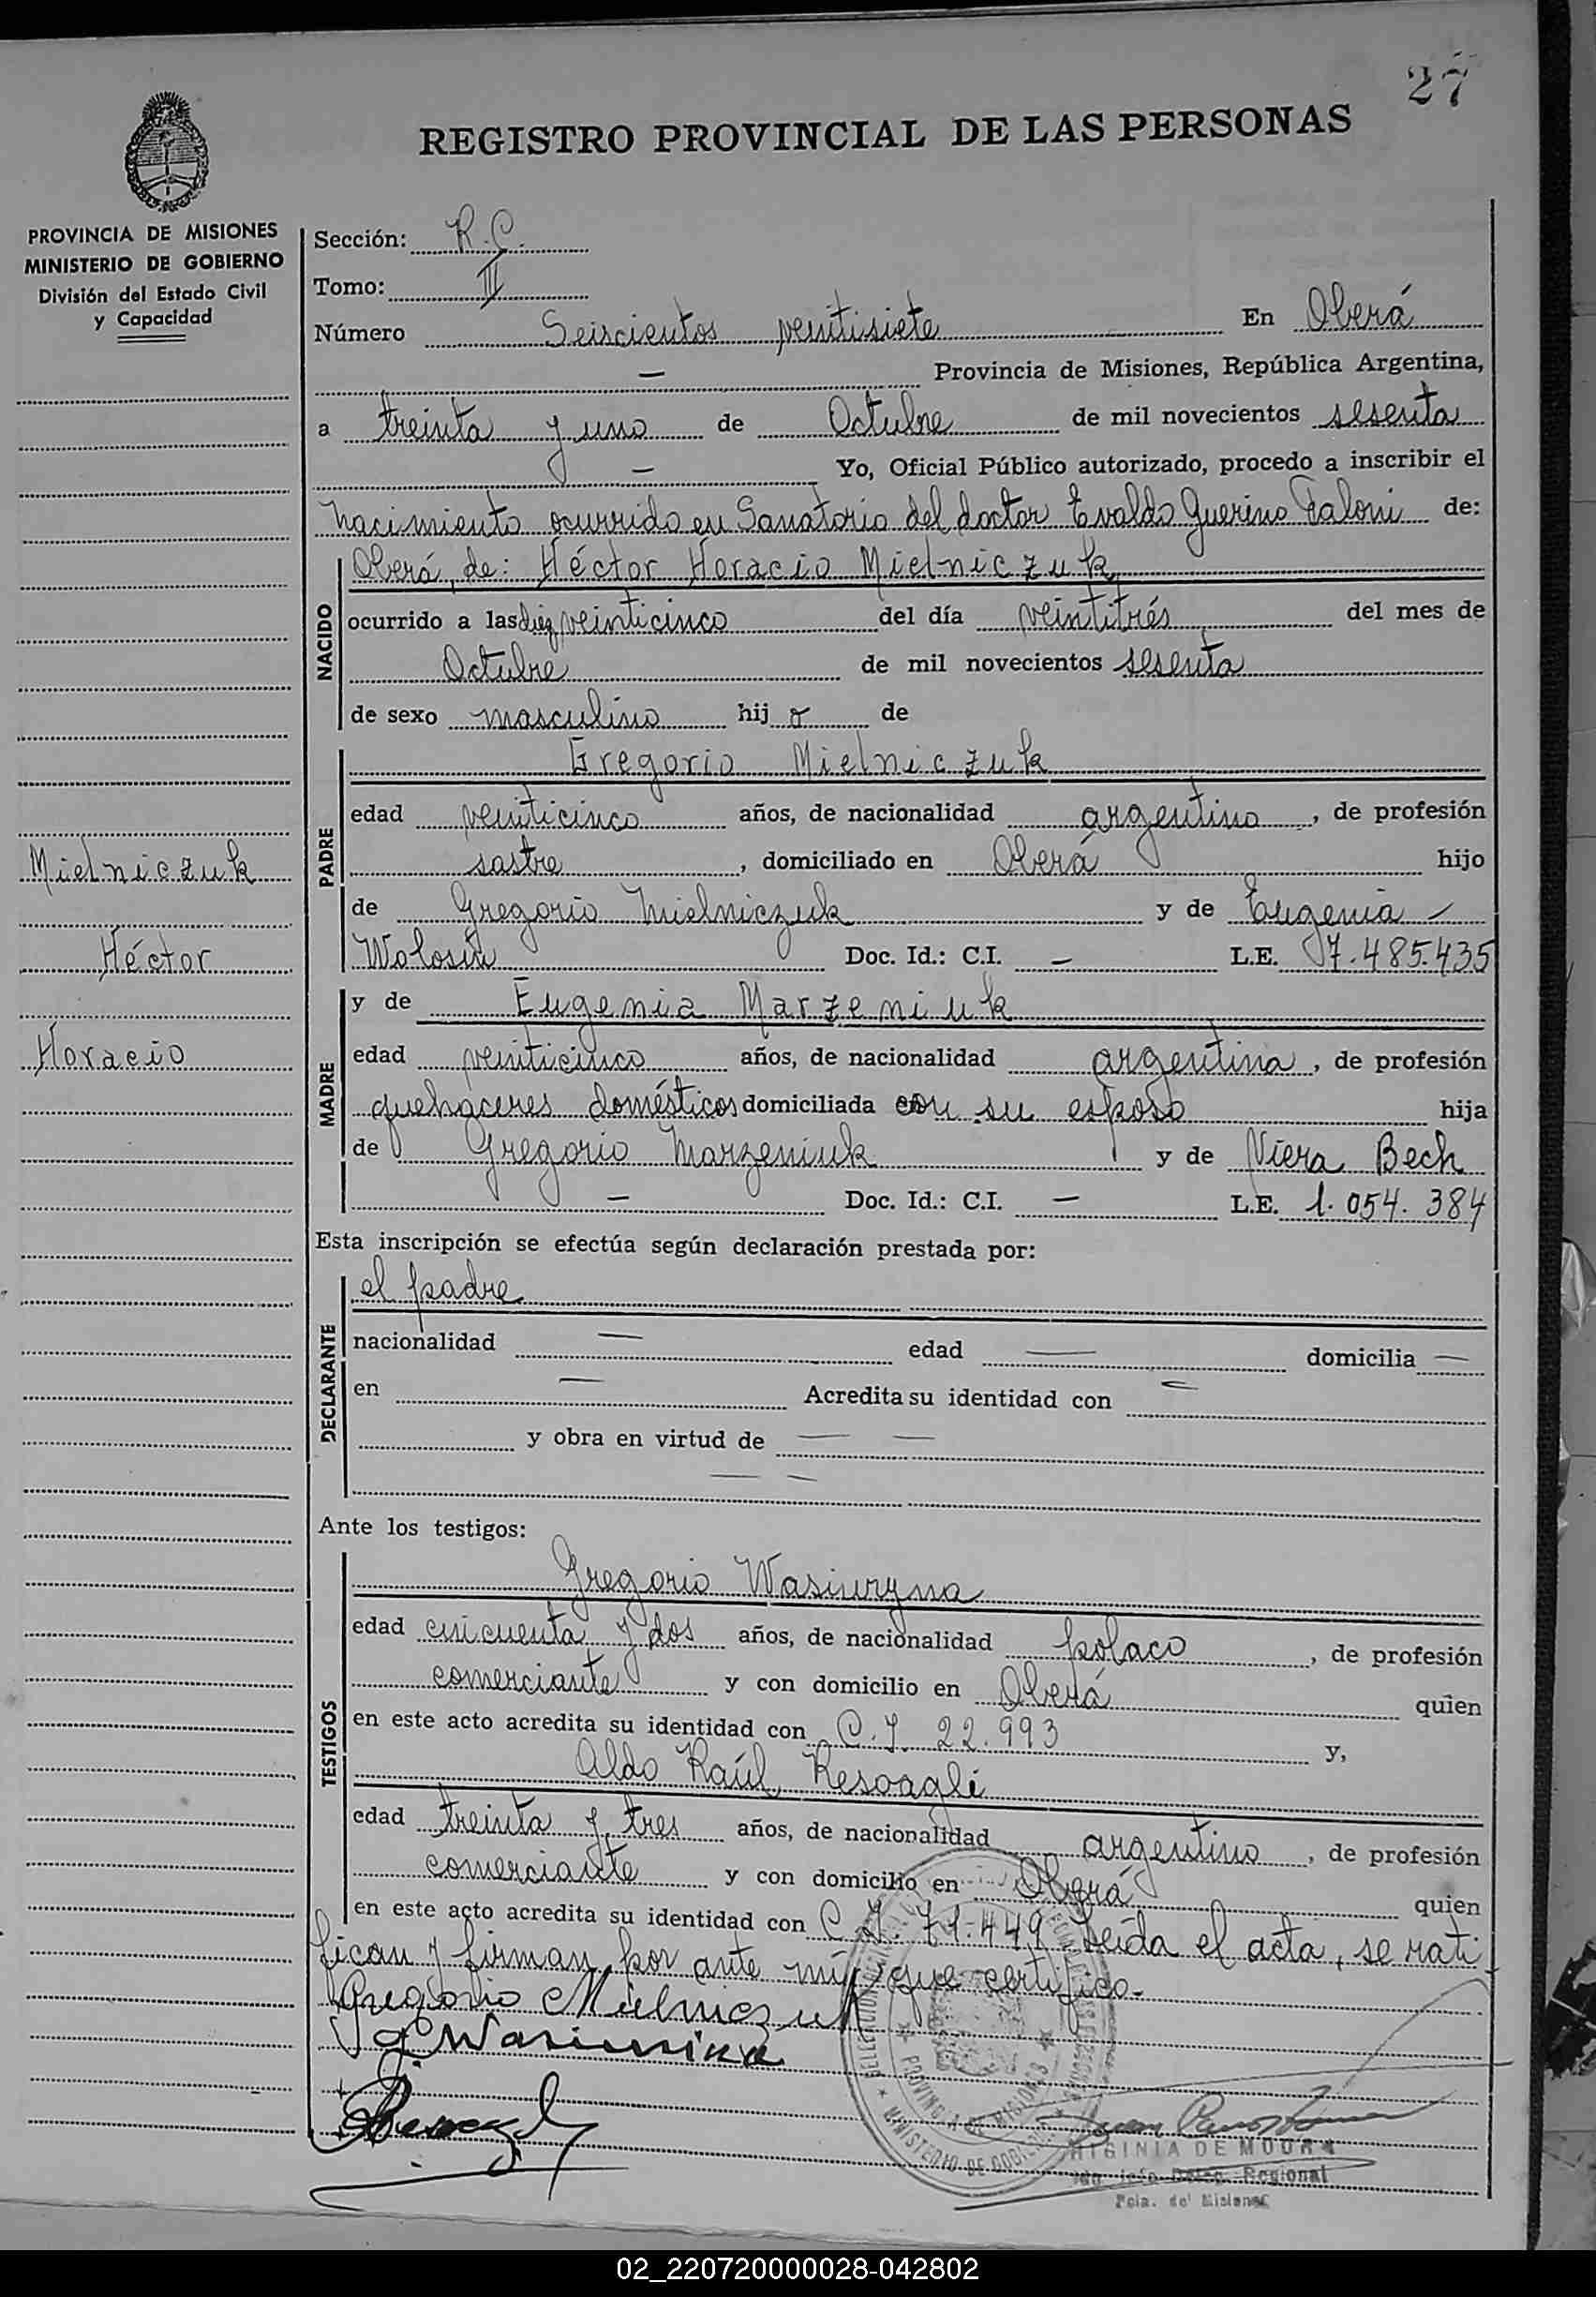 27
REGISTRO PROVINCIAL DE LAS PERSONAS
PROVINCIA DE MISIONES
MINISTERIO DE GOBIERNO
División del Estado Civil
y Capacidad
Mielniczuk
Héctor
Horacio
Sección: R.C.
Tomo: II
Número Seiscientos veintisiete En Oberá
— Provincia de Misiones, República Argentina,
a treinta y uno de Octubre de mil novecientos sesenta
— Yo, Oficial Público autorizado, procedo a inscribir el
nacimiento ocurrido en Sanatorio del doctor Evaldo Guerino Faloni de:
NACIDO
Oberá, de: Héctor Horacio Mielniczuk
ocurrido a las diez veinticinco del día veintitrés del mes de
Octubre de mil novecientos sesenta
de sexo masculino hijo de
PADRE
Gregorio Mielniczuk
edad veinticinco años, de nacionalidad argentino, de profesión
sastre, domiciliado en Oberá hijo
de Gregorio Mielniczuk y de Eugenia —
Wolosin Doc. Id.: C.I. — L.E. 7.485.435
MADRE
y de Eugenia Marzeniuk
edad veinticinco años, de nacionalidad argentina, de profesión
quehaceres domésticos domiciliada con su esposo hija
de Gregorio Marzeniuk y de Viera Bech
— Doc. Id.: C.I. — L.E. 1.054.384
Esta inscripción se efectúa según declaración prestada por:
DECLARANTE
el padre
nacionalidad — edad — domicilia —
en — Acredita su identidad con —
y obra en virtud de — —
— —
Ante los testigos:
TESTIGOS
Gregorio Wasiuryna
edad cincuenta y dos años, de nacionalidad polaco, de profesión
comerciante y con domicilio en Oberá quien
en este acto acredita su identidad con C.I. 22.993 y,
Aldo Raúl Resoagli
edad treinta y tres años, de nacionalidad argentino, de profesión
comerciante y con domicilio en Oberá quien
en este acto acredita su identidad con C.I. 71.449. Leída el acta, se rati
fican y firman por ante mí, que certifico.
Gregorio Mielniczuk
PROVINCIA DE MISIONES
MINISTERIO DE GOBIERNO
HIGINIA DE MOURA
Regional
Pcia. de Misiones
02_220720000028-042802